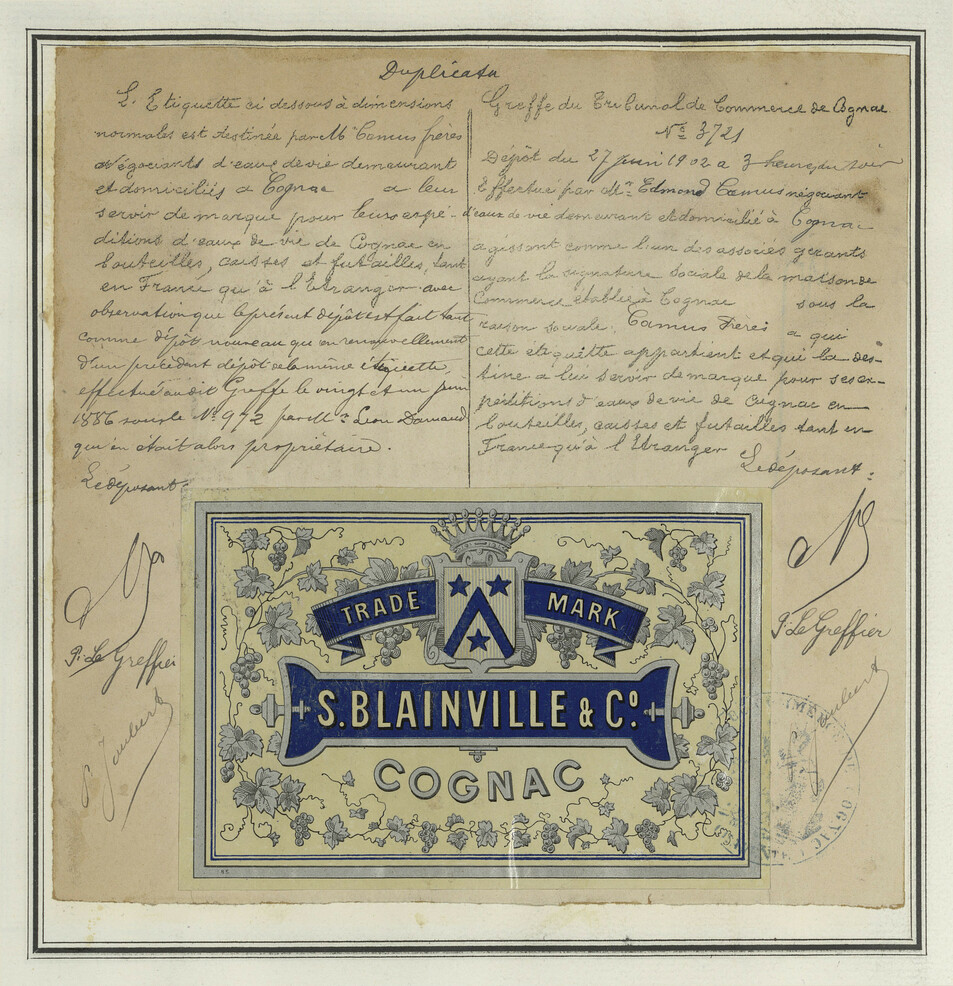 Duplicata
L'Etiquette ci dessous à dimensions
normales est destinée par MM Camus frères
négociants d'eaux de vie demeurant
et domiciliés à Cognac a leur
servir de marque pour leurs expé-
ditions d'eaux de vie de Cognac en
bouteilles, caisses et futailles, tant
en France qu'à l'Etranger avec
observation que le présent dépôt est fait tant
comme dépôt nouveau que en renouvellement
d'un précédent dépôt de la même étiquette,
effectué audit Greffe le vingt et un juin
1886 sous le No 972 par Mr Léon Damaud
qui en était alors propriétaire.
Le déposant
P. Le Greffier
Joubert
Greffe du Tribunal de Commerce de Cognac
No 3721
Dépôt du 27 juin 1902 a 3 heures du soir
Effectué par Mr Edmond Camus négociant
d'eaux de vie demeurant et domicilié à Cognac
agissant comme l'un des associés gérants
ayant la signature sociale de la maison de
Commerce établie à Cognac sous la
raison sociale: Camus Frères a qui
cette etiquette appartient et qui la des-
tine a lui servir de marque pour ses ex-
péditions d'eaux de vie de Cognac en
bouteilles, caisses et futailles tant en
France qu'à l'Etranger
Le déposant.
P. Le Greffier
Joubert
TRADE MARK
S. BLAINVILLE & Co.
COGNAC